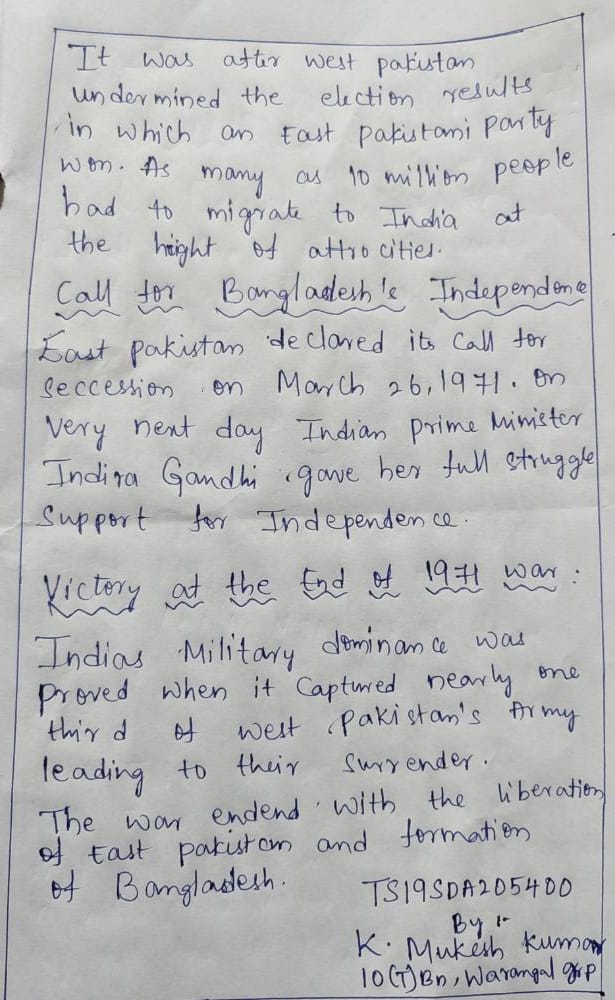 It was after west pakistan
undermined the election results
in which an East pakistani party
won. As many as 10 million people
had to migrate to India at
the hight of attrocities.
Call for Bangladesh's Independence
East pakistan declared its call for
seccession on March 26, 1971. on
very next day Indian prime Minister
Indira Gandhi gave her full struggle
Support for Independence.
Victory at the End of 1971 war :
Indias Military dominance was
proved when it Captured nearly one
third of west pakistan's Army
leading to their surrender.
The war endend with the liberation
of East pakistan and formation
of Bangladesh.
TS19SDA205400
By :-
K. Mukesh kumar
10(T)Bn, Warangal grp